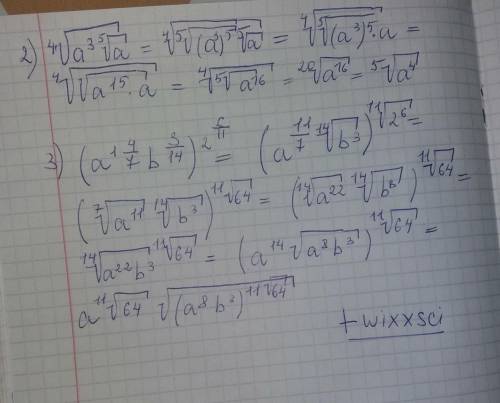 2) ⁴√(a³ ⁵√a) = ⁴√(⁵√((a³)⁵) ⁵√a) = ⁴√(⁵√((a³)⁵·a)) =
⁴√(√(a¹⁵·a)) = ⁴√(⁵√(a¹⁶)) = ²⁰√(a¹⁶) = ⁵√(a⁴)
3) (a^(1 4/7) b^(3/14))^(2^(6/11)) = (a^(11/7) ¹⁴√(b³))^(¹¹√(2⁶)) =
(⁷√(a¹¹) ¹⁴√(b³))^(¹¹√64) = (¹⁴√(a²²) ¹⁴√(b³))^(¹¹√64) =
¹⁴√(a²²b³)^(¹¹√64) = (a ¹⁴√(a⁸b³))^(¹¹√64) =
a^(¹¹√64) √((a⁸b³)^(¹¹√64))
+wixxsci